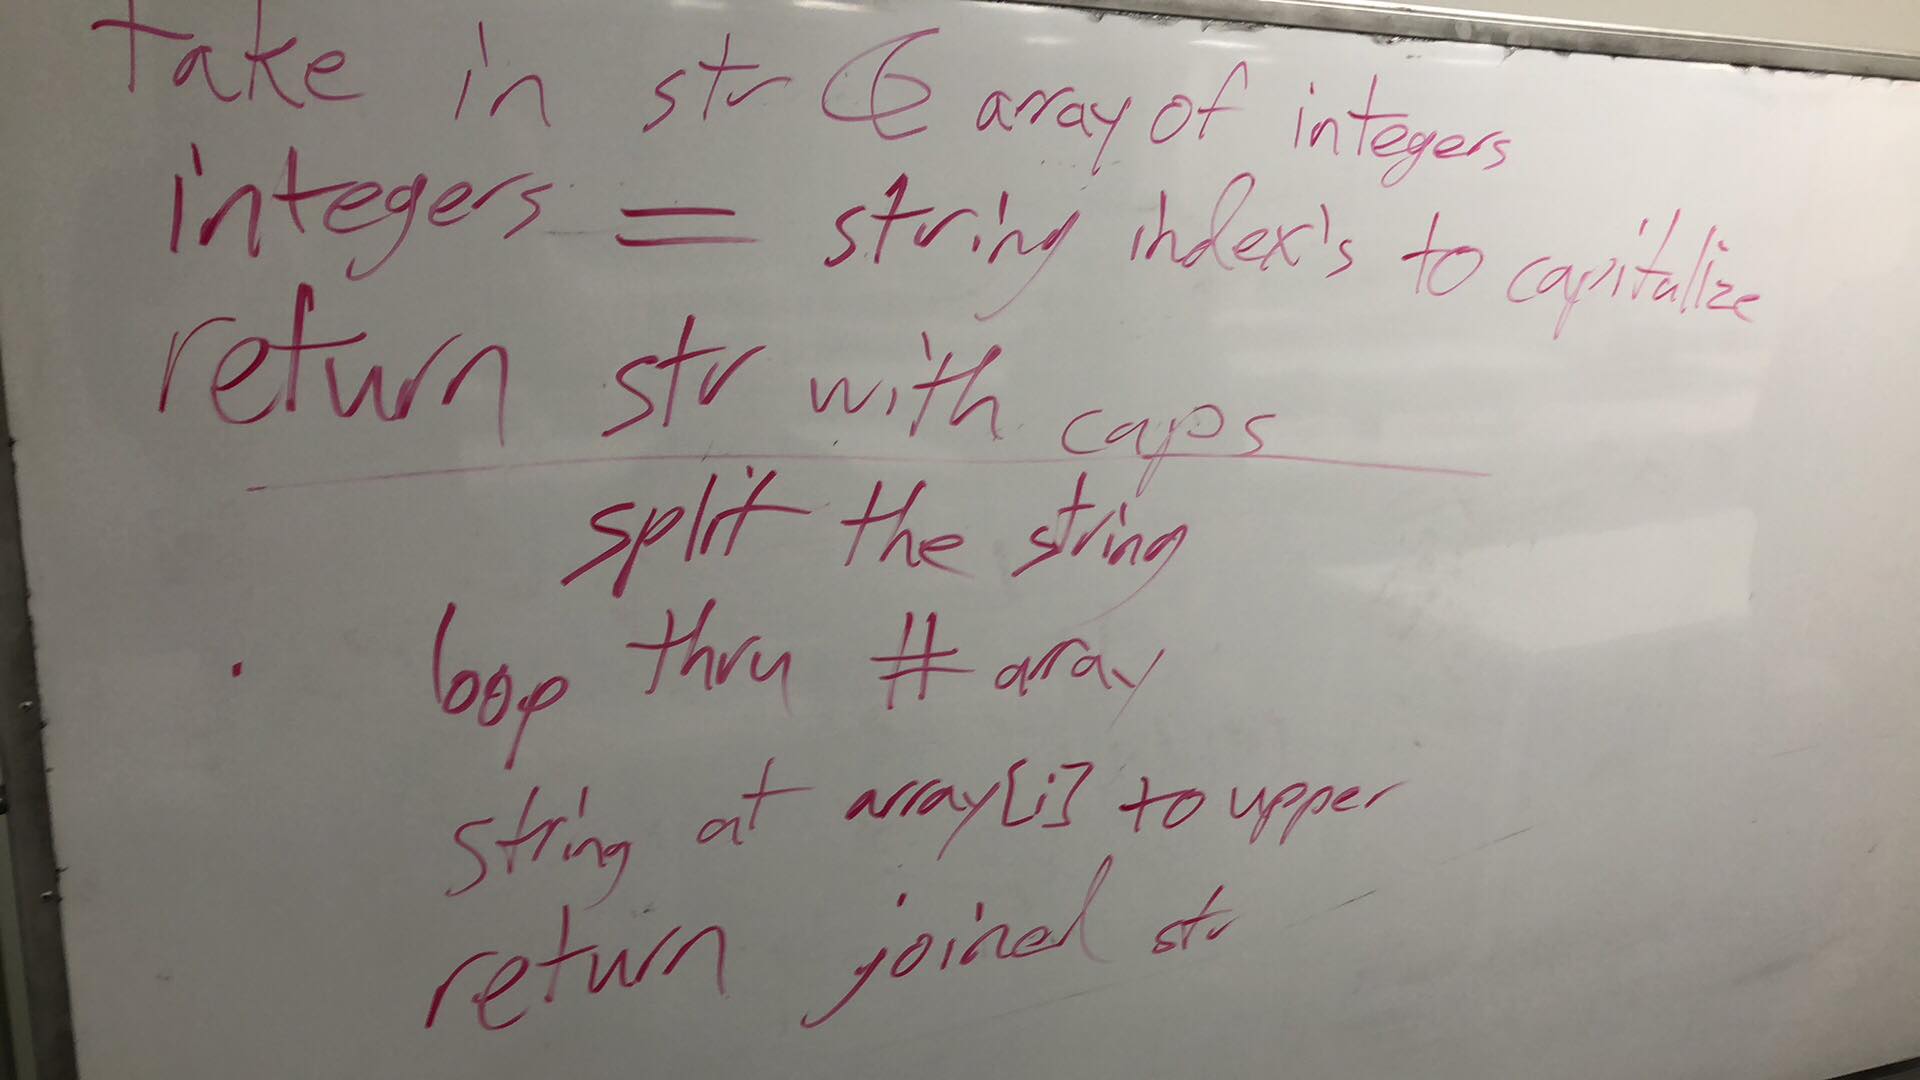 take in str & array of integers
integers = string index's to capitalize
return str with caps
split the string
loop thru # array
string at array[i] to upper
return joined str